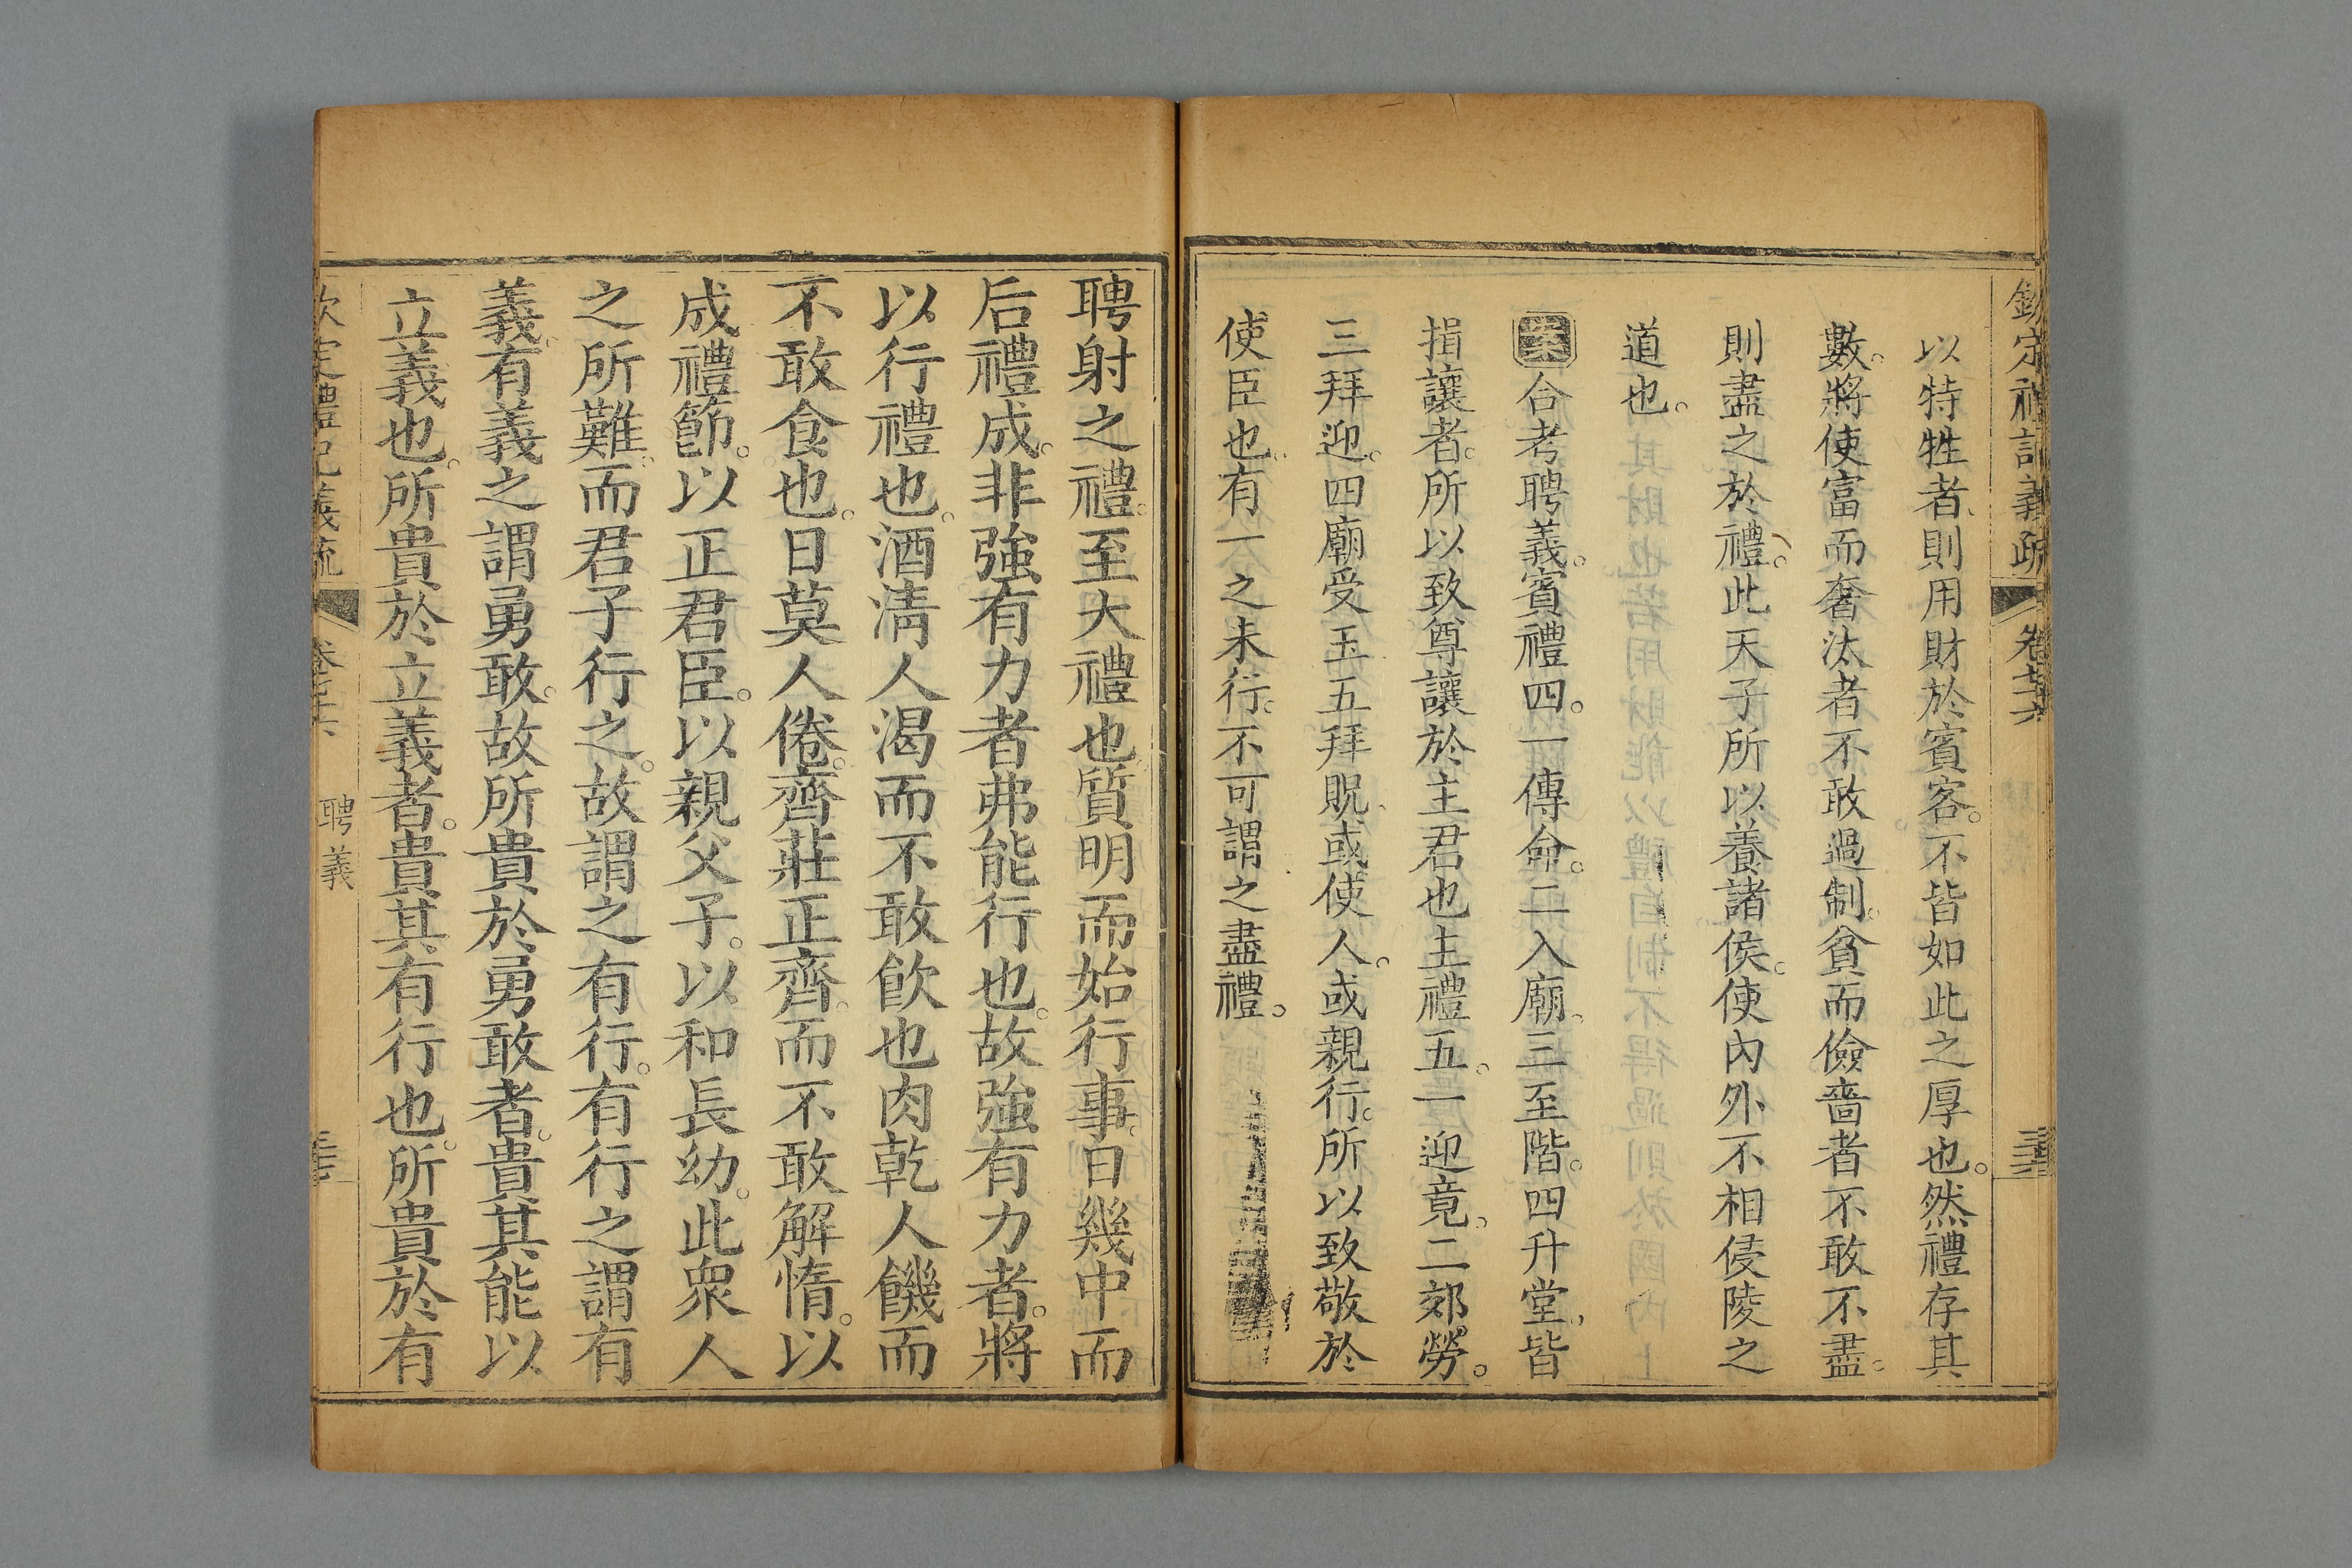 欽定禮記義疏 卷七十六
以特牲者、則用財於賓客。不皆如此之厚也。然禮存其
數。將使富而奢汰者不敢過制。貧而儉嗇者不敢不盡。
則盡之於禮。此天子所以養諸侯。使內外不相侵陵之
道也。
案合考聘義。賓禮四。一傳命。二入廟、三至階。四升堂、皆
揖讓者。所以致尊讓於主君也主禮五。一迎竟。二郊勞。
三拜迎。四廟受玉五拜貺、或使人。或親行。所以致敬於
使臣也。有一之未行。不可謂之盡禮。
聘射之禮。至大禮也。質明而始行事。日幾中而
后禮成。非強有力者弗能行也。故強有力者。將
以行禮也。酒清人渴而不敢飲也肉乾人饑而
不敢食也。日莫人倦。齊莊正齊。而不敢解惰。以
成禮節。以正君臣。以親父子。以和長幼。此衆人
之所難。而君子行之。故謂之有行。有行之謂有
義。有義之謂勇敢。故所貴於勇敢者。貴其能以
立義也。所貴於立義者。貴其有行也。所貴於有
聘義